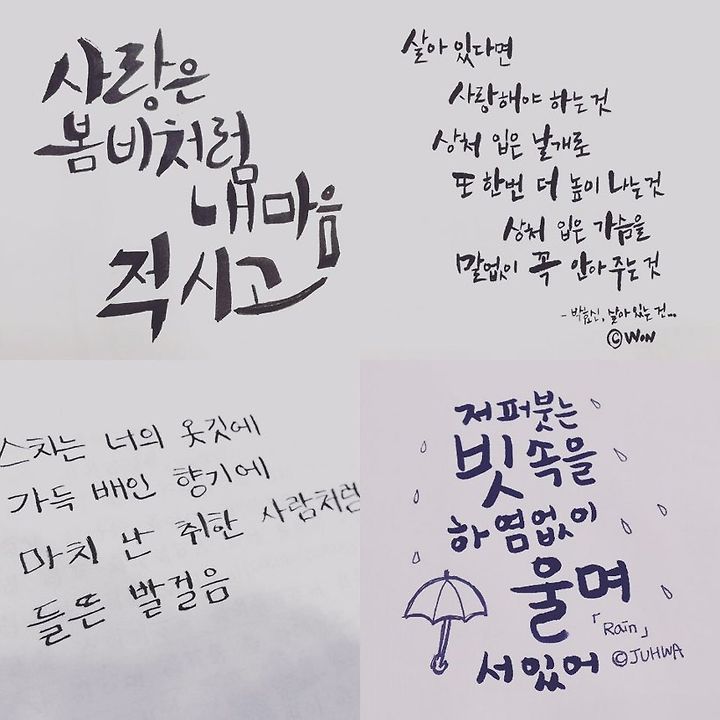 사랑은
봄비처럼
내마음
적시고
살아 있다면
사랑해야 하는 것
상처 입은 날개로
또 한번 더 높이 나는 것
상처 입은 가슴을
말없이 꼭 안아 주는 것
- 박효신, 살아 있는 건...
©WON
스치는 너의 옷깃에
가득 배인 향기에
마치 난 취한 사람처럼
들뜬 발걸음
저 퍼붓는
빗속을
하염없이
울며
「Rain」
서있어 ©JUHWA